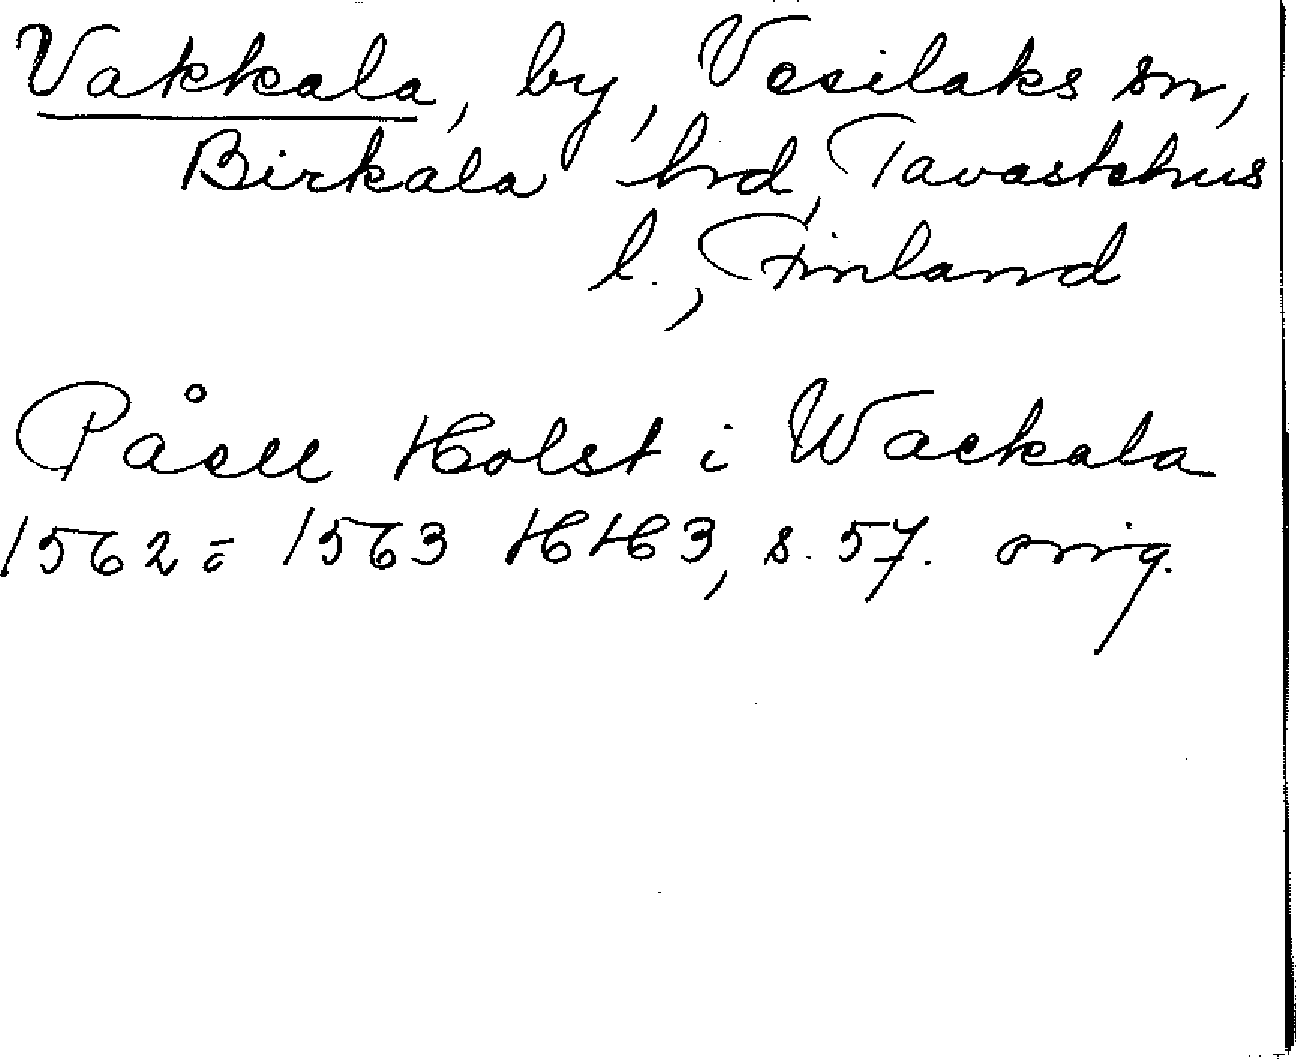 Vakkala, by, Vesilaks sn,
Birkala hrd, Tavastehus
l., Finland
Påell Holst i Wackala
1562 = 1563 HH3, s. 57. orig.